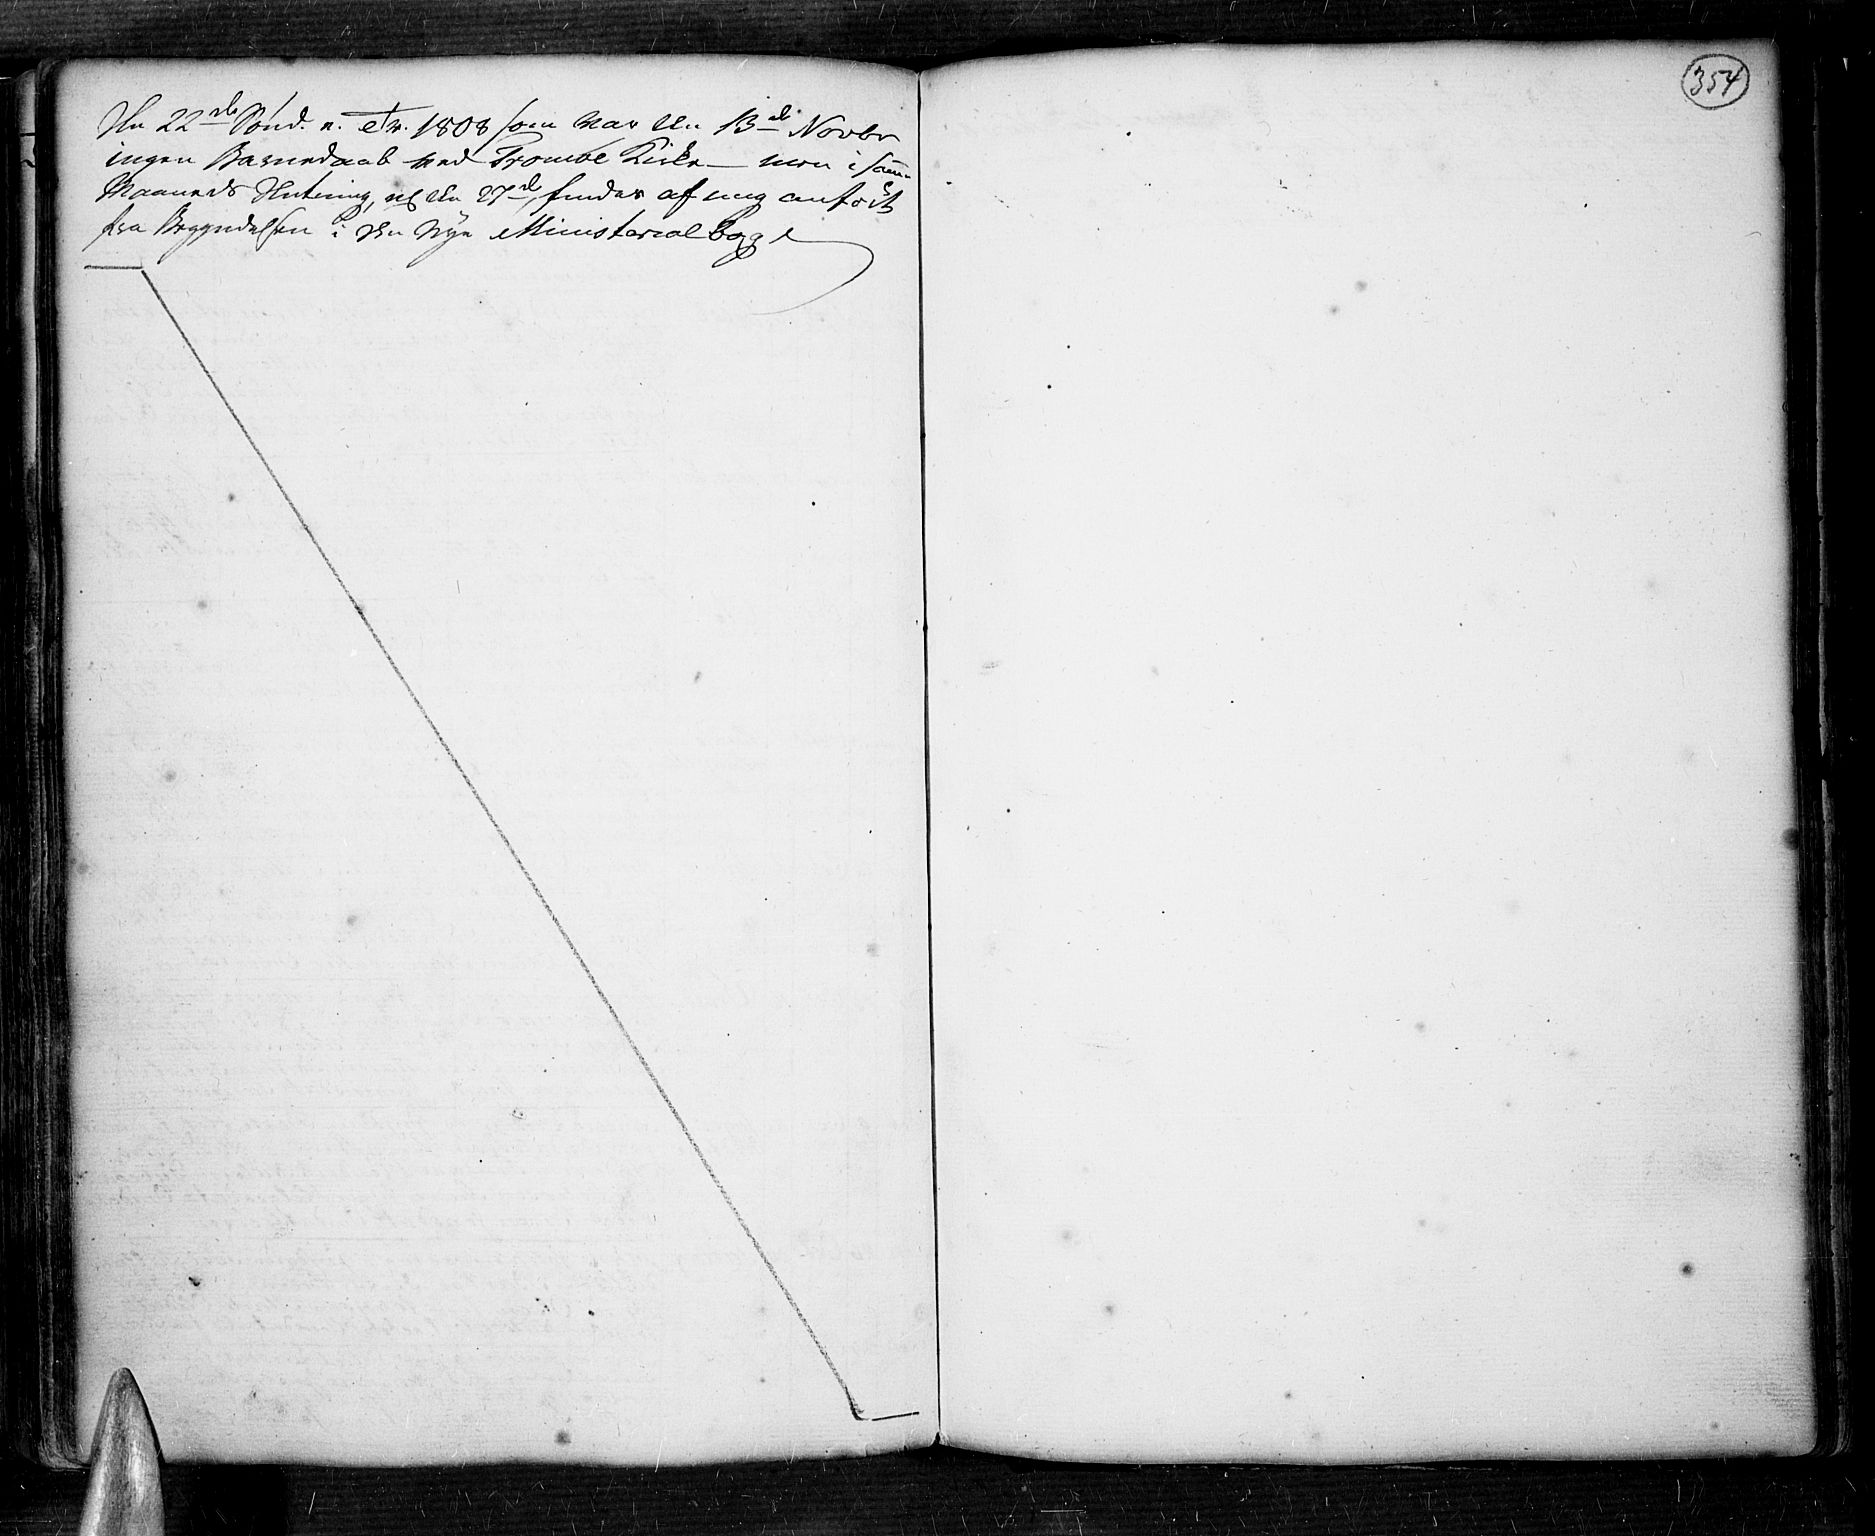 354
Den 22de Sönd. n. Tr. 1808 som var den 13de Novbr
ingen Barnedaab ved Tromöe Kirke — men i samme
Maaneds Slutning, den 27de, findes af mig anfört
fra Begyndelsen i den Nye Ministerial Bog